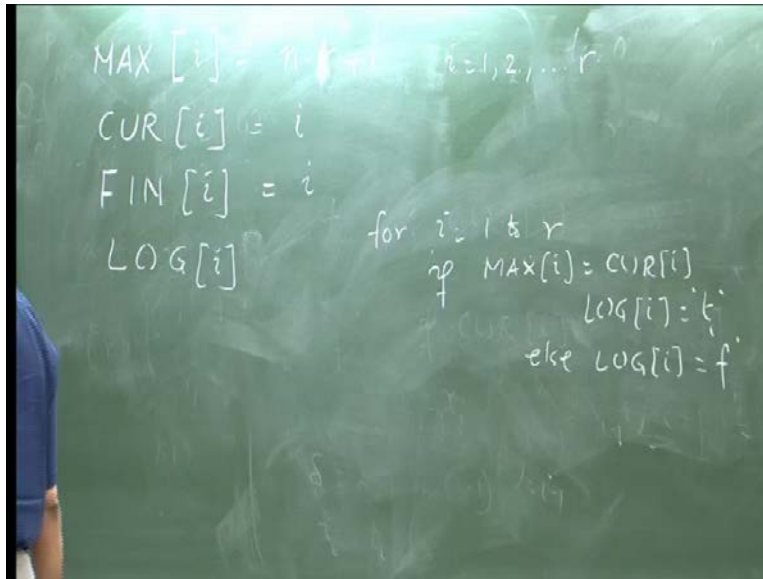 MAX [i] = n - r + i i=1, 2, ... r
CUR[i] = i
FIN [i] = i
LOG[i]
for i = 1 to r
if MAX[i] = CUR[i]
LOG[i] = 't'
else LOG[i] = 'f'